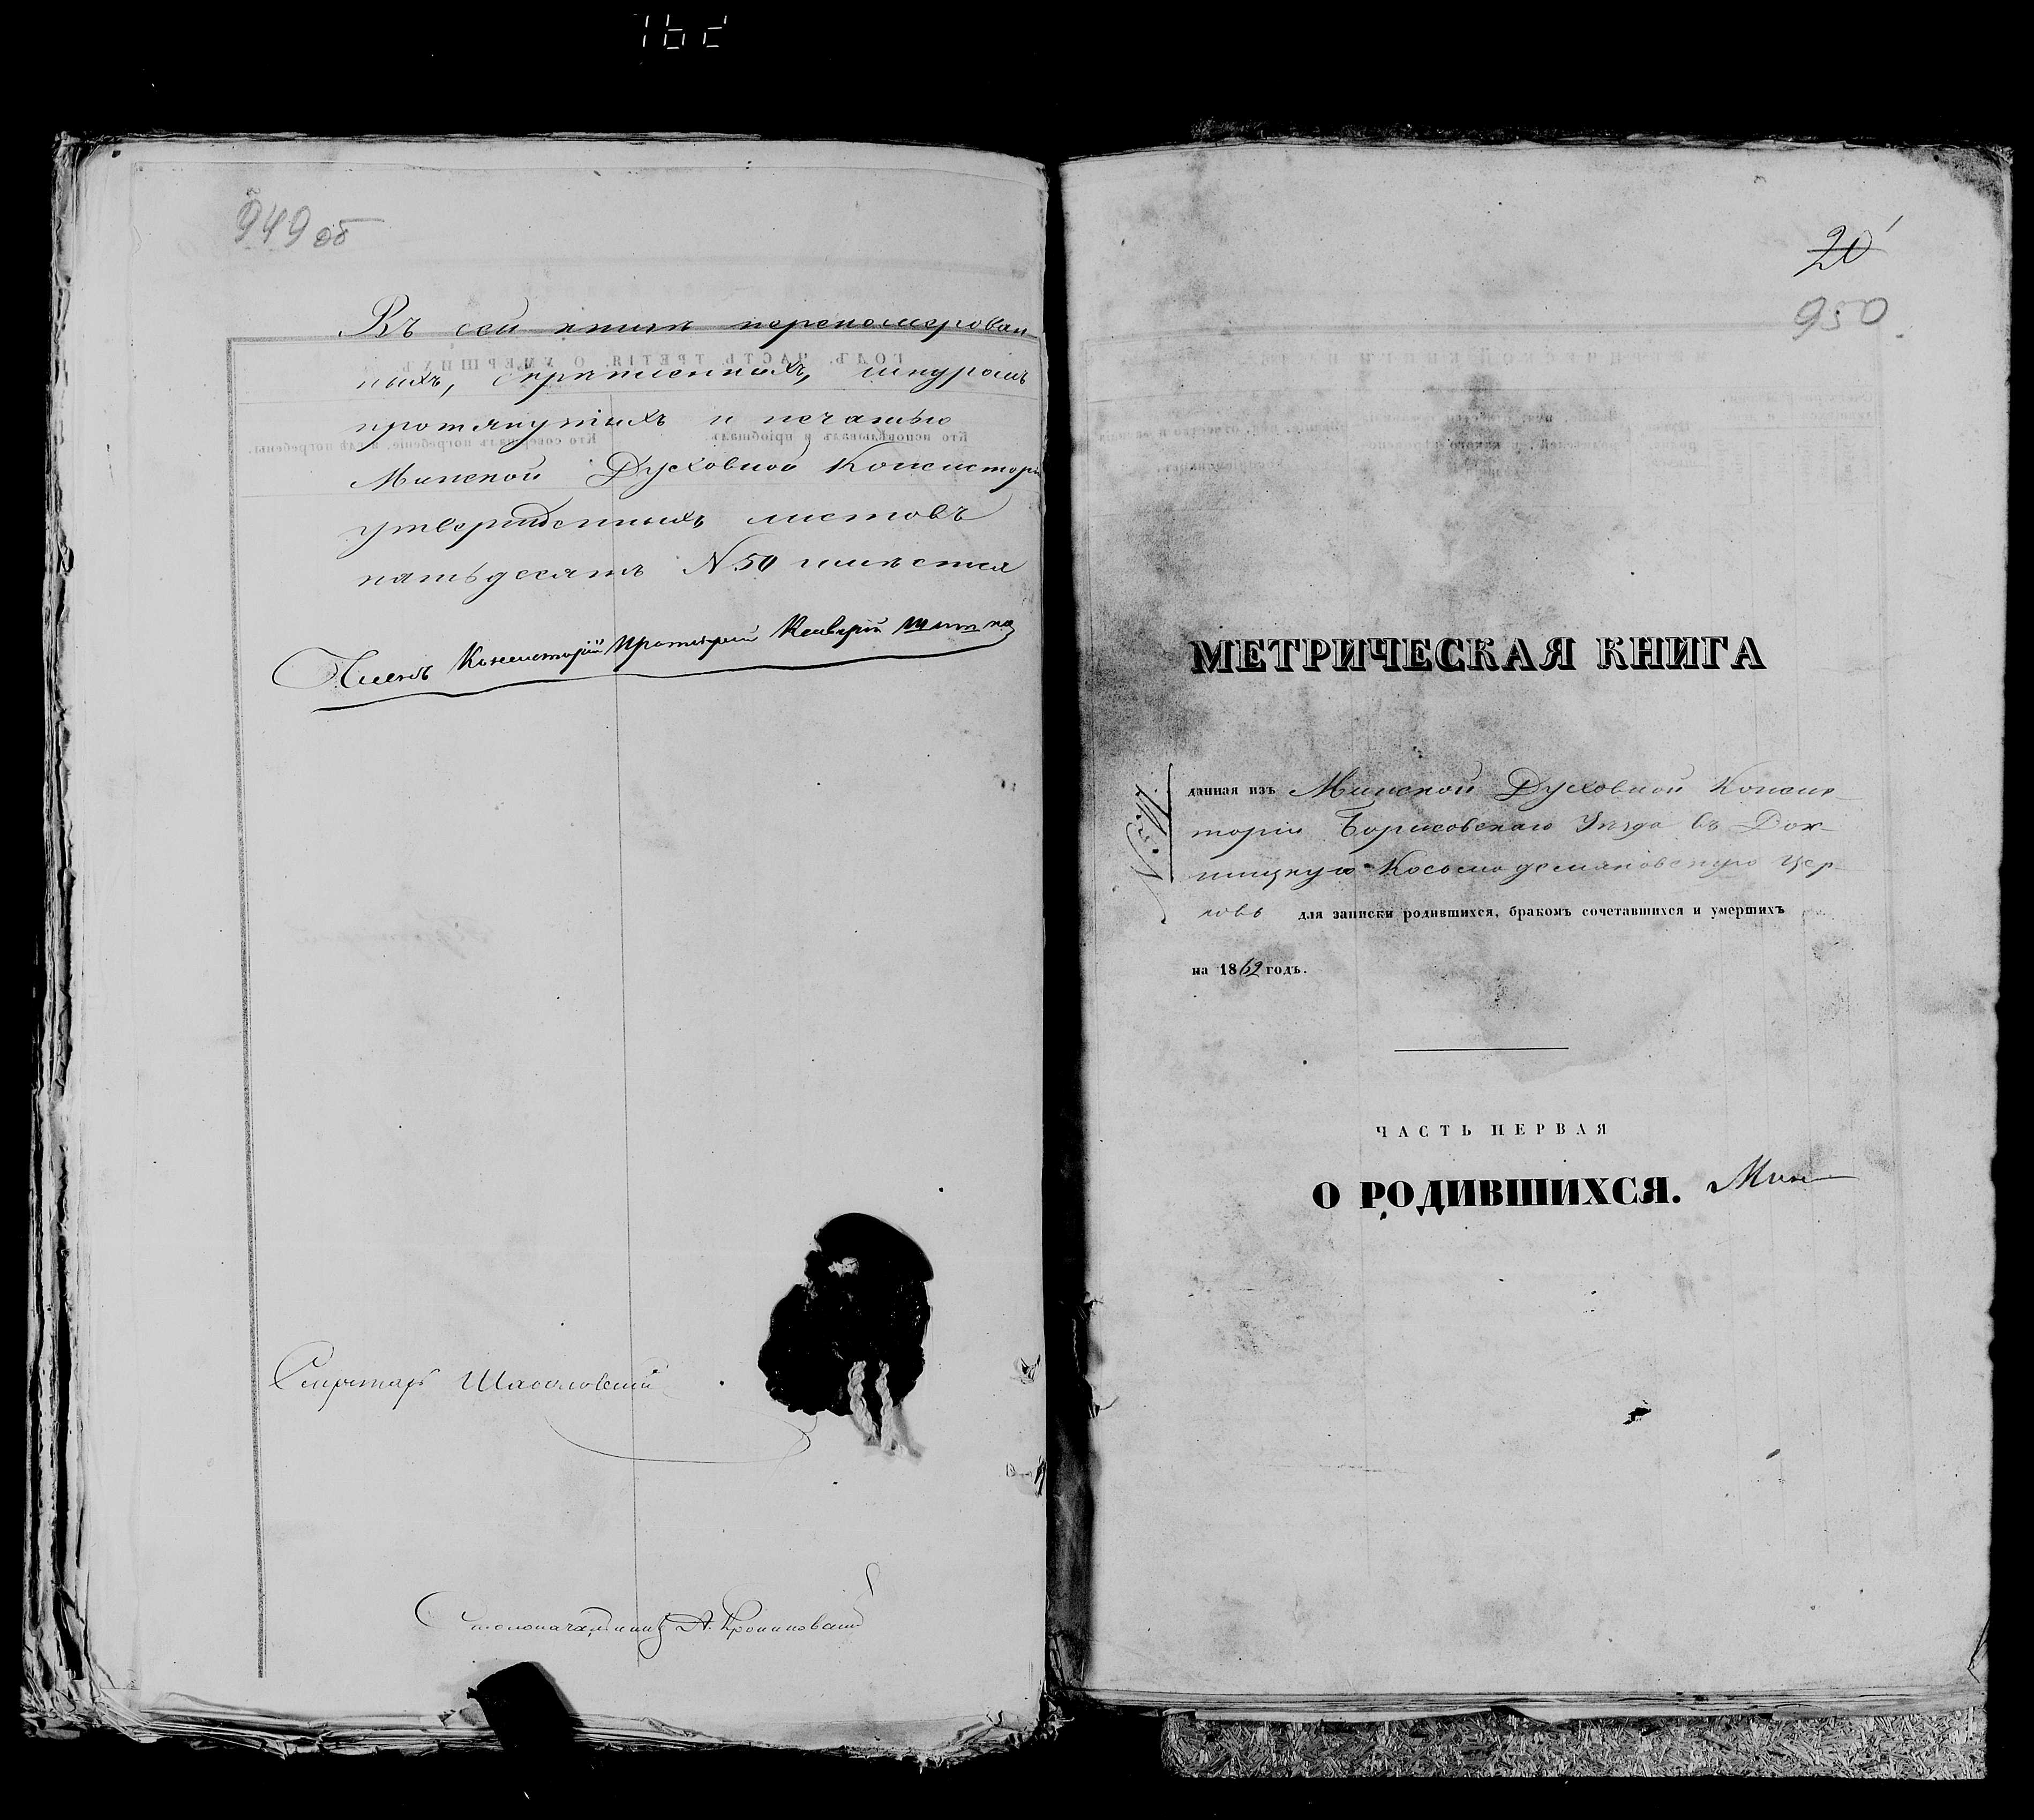 949 об
Въ сей книгѣ переномерован-
ныхъ, скрѣпленныхъ, шнуромъ
протянутыхъ и печатью
Минской Духовной Консисторіи
утвержденныхъ листовъ
пятьдесятъ N 50 имѣется
Членъ Консисторіи Протоіерей
Секретарь
Столоначальникъ А.
20
950
МЕТРИЧЕСКАЯ КНИГА
данная изъ Минской Духовной Консис-
торіи Борисовскаго Уѣзда въ Док-
шицкую Косьмодемяновскую Цер-
ковь для записки родившихся, бракомъ сочетавшихся и умершихъ
на 1862 годъ.
ЧАСТЬ ПЕРВАЯ
О РОДИВШИХСЯ.